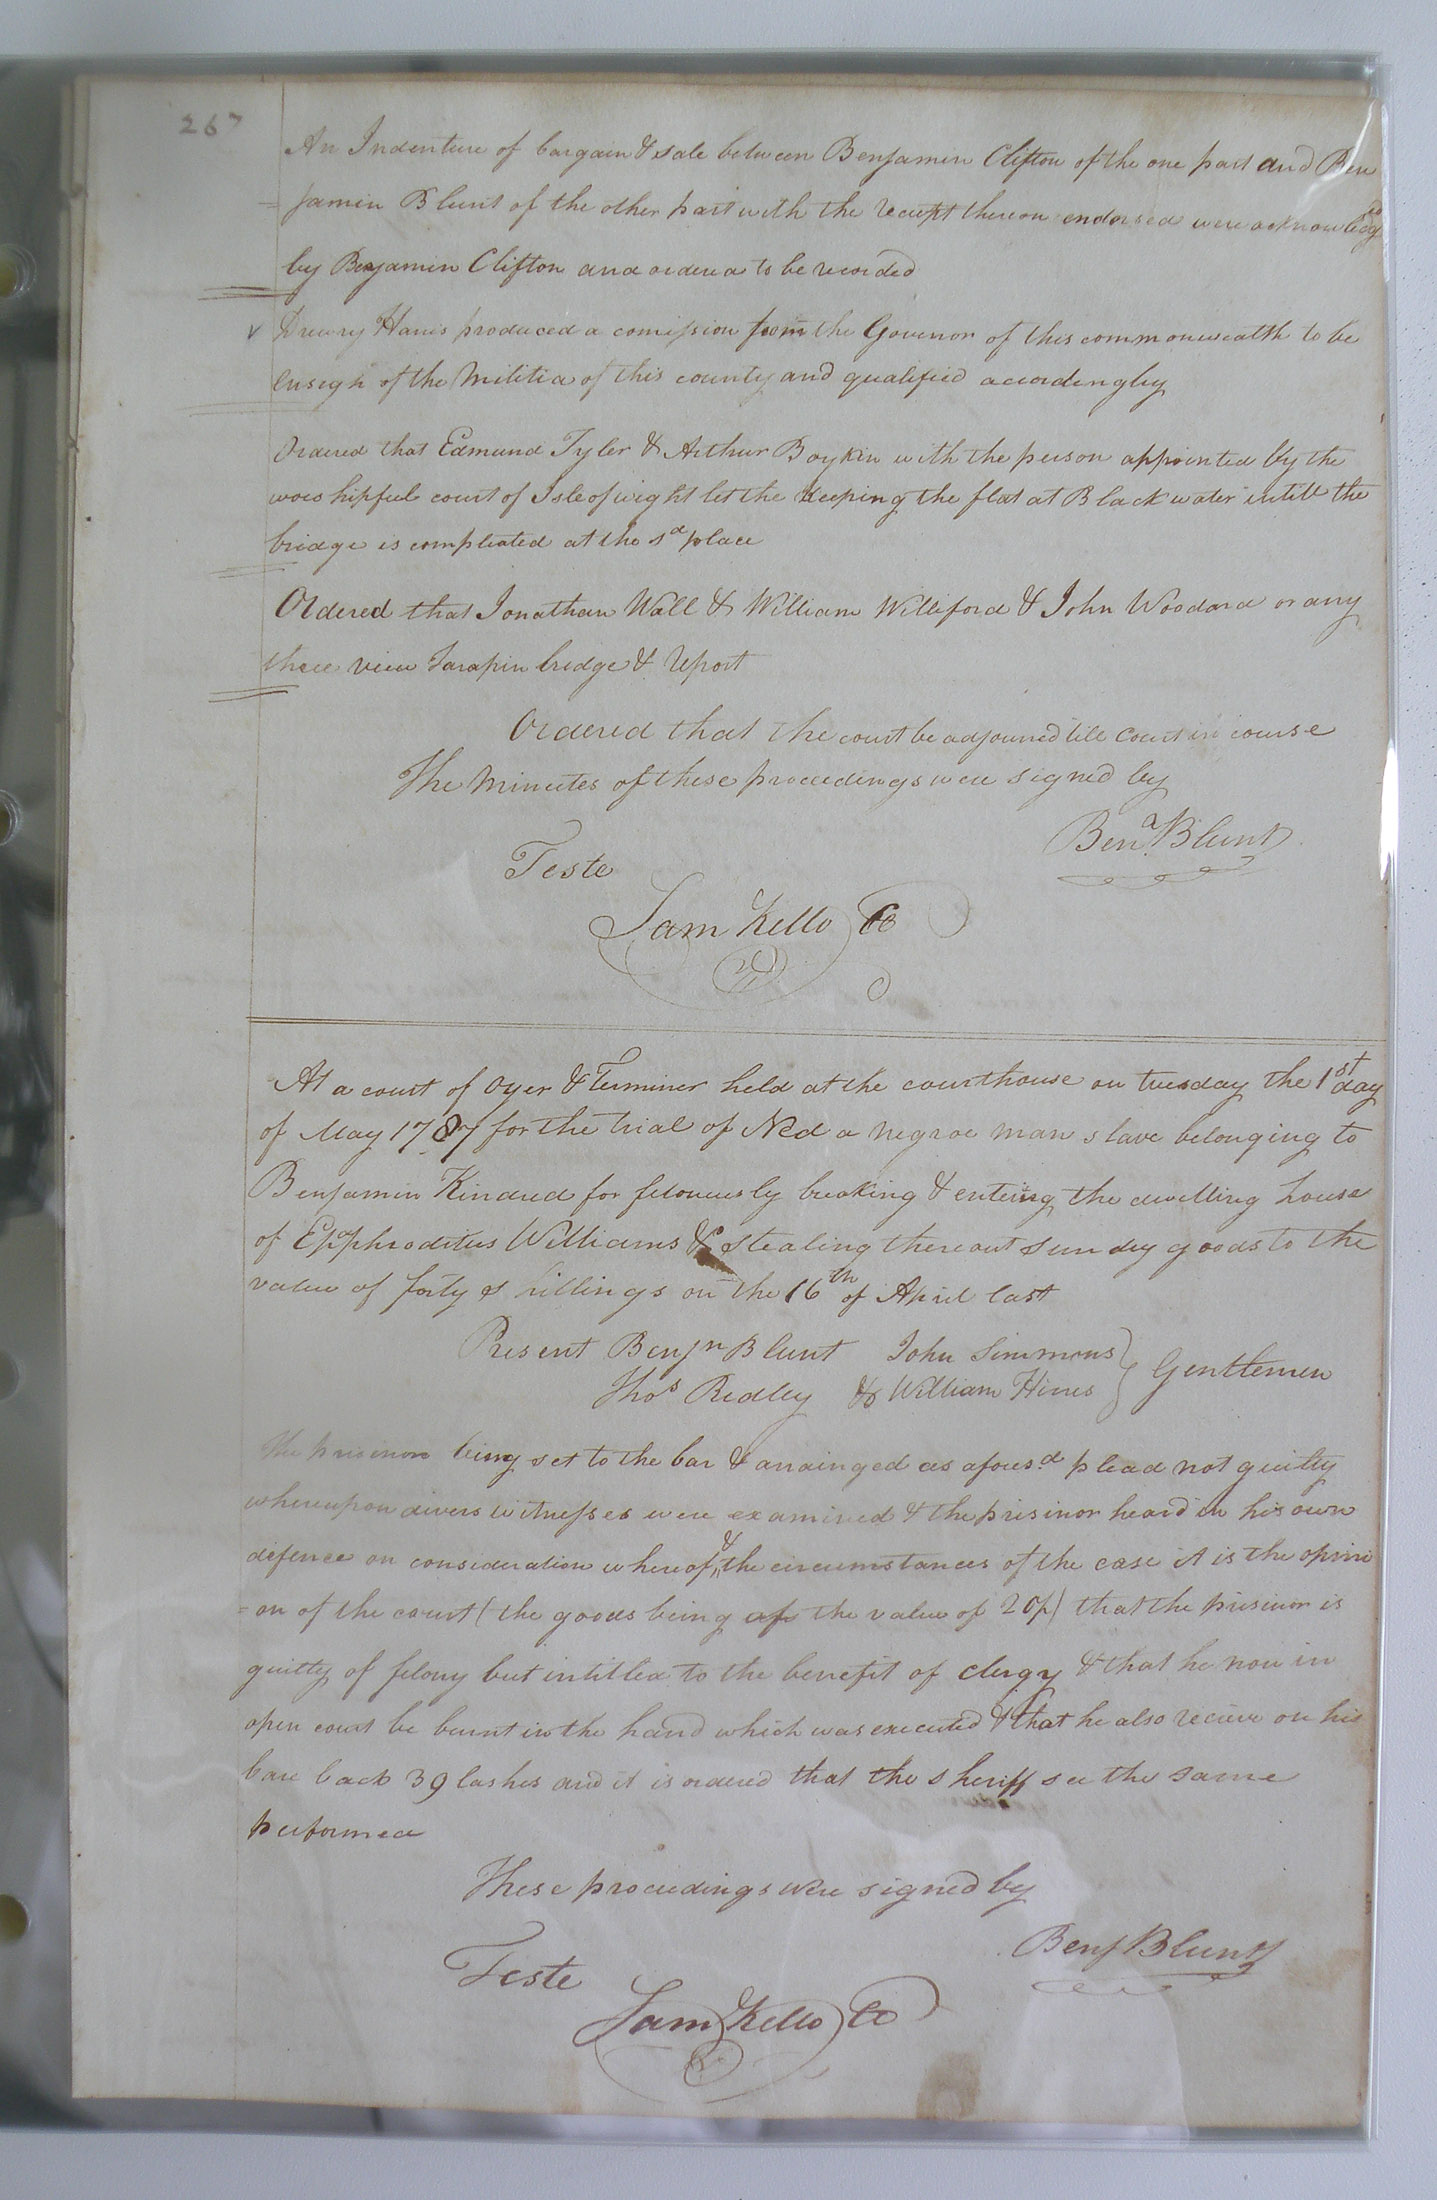 267
An Indenture of bargain & sale between Benjamin Clifton of the one part and Ben
= jamin Blunt of the other part with the receipt thereon endorsed were acknowledged
by Benjamin Clifton and ordered to be recorded
Drewry Haris produced a comission from the Govenor of this commonwealth to be
Ensign of the Militia of this county and qualified accordingly
Ordered that Edmund Tyler & Arthur Boykin with the person appointed by the
worshipful court of Isle of wight let the keeping the flat at Blackwater untill the
bridge is compleated at the sd place
Ordered that Jonathan Wall & William Williford & John Woodard or any
three view Tarapin bridge & report
Ordered that the court be adjourned till court in course
The Minutes of these proceedings were signed by
Bena Blunt
Teste
Sam Kello CC
At a court of Oyer & Terminer held at the courthouse on tuesday the 1st day
of May 1787 for the trial of Ned a negroe man slave belonging to
Benjamin Kindred for feloniously breaking & entering the dwelling house
of Epphroditus Williams & stealing thereout sundry goods to the
value of forty shillings on the 16th of April last
Present Benjn Blunt John Simmons
Thos Ridley & William Hines } Gentlemen
The prisinor being set to the bar & arrainged as afoursd plead not guilty
whereupon divers witnesses were examined & the prisinor heard in his own
defence on consideration whereof & the circumstances of the case it is the opini
= on of the court (the goods being of the value of 20/) that the prisinor is
guilty of felony but intitled to the benefit of clergy & that he now in
open court be burnt in the hand which was executed & that he also recieve on his
bare back 39 lashes and it is ordered that the sheriff see the same
performed
These proceedings were signed by
Benj Blunt
Teste
Sam Kello CC